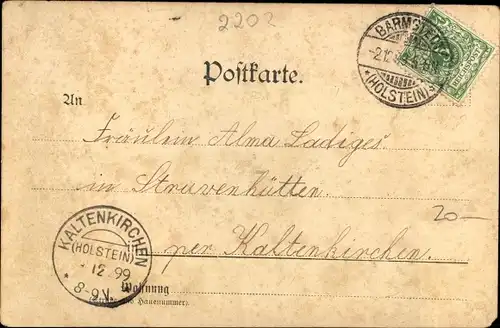 2202
BARMSTEDT
(HOLSTEIN)
Postkarte.
An
Fräulein Alma Ladiges
in Struvenhütten
20-
per Kaltenkirchen
KALTENKIRCHEN
(HOLSTEIN)
12 99
8-9 V.
Wohnung
und Hausnummer).